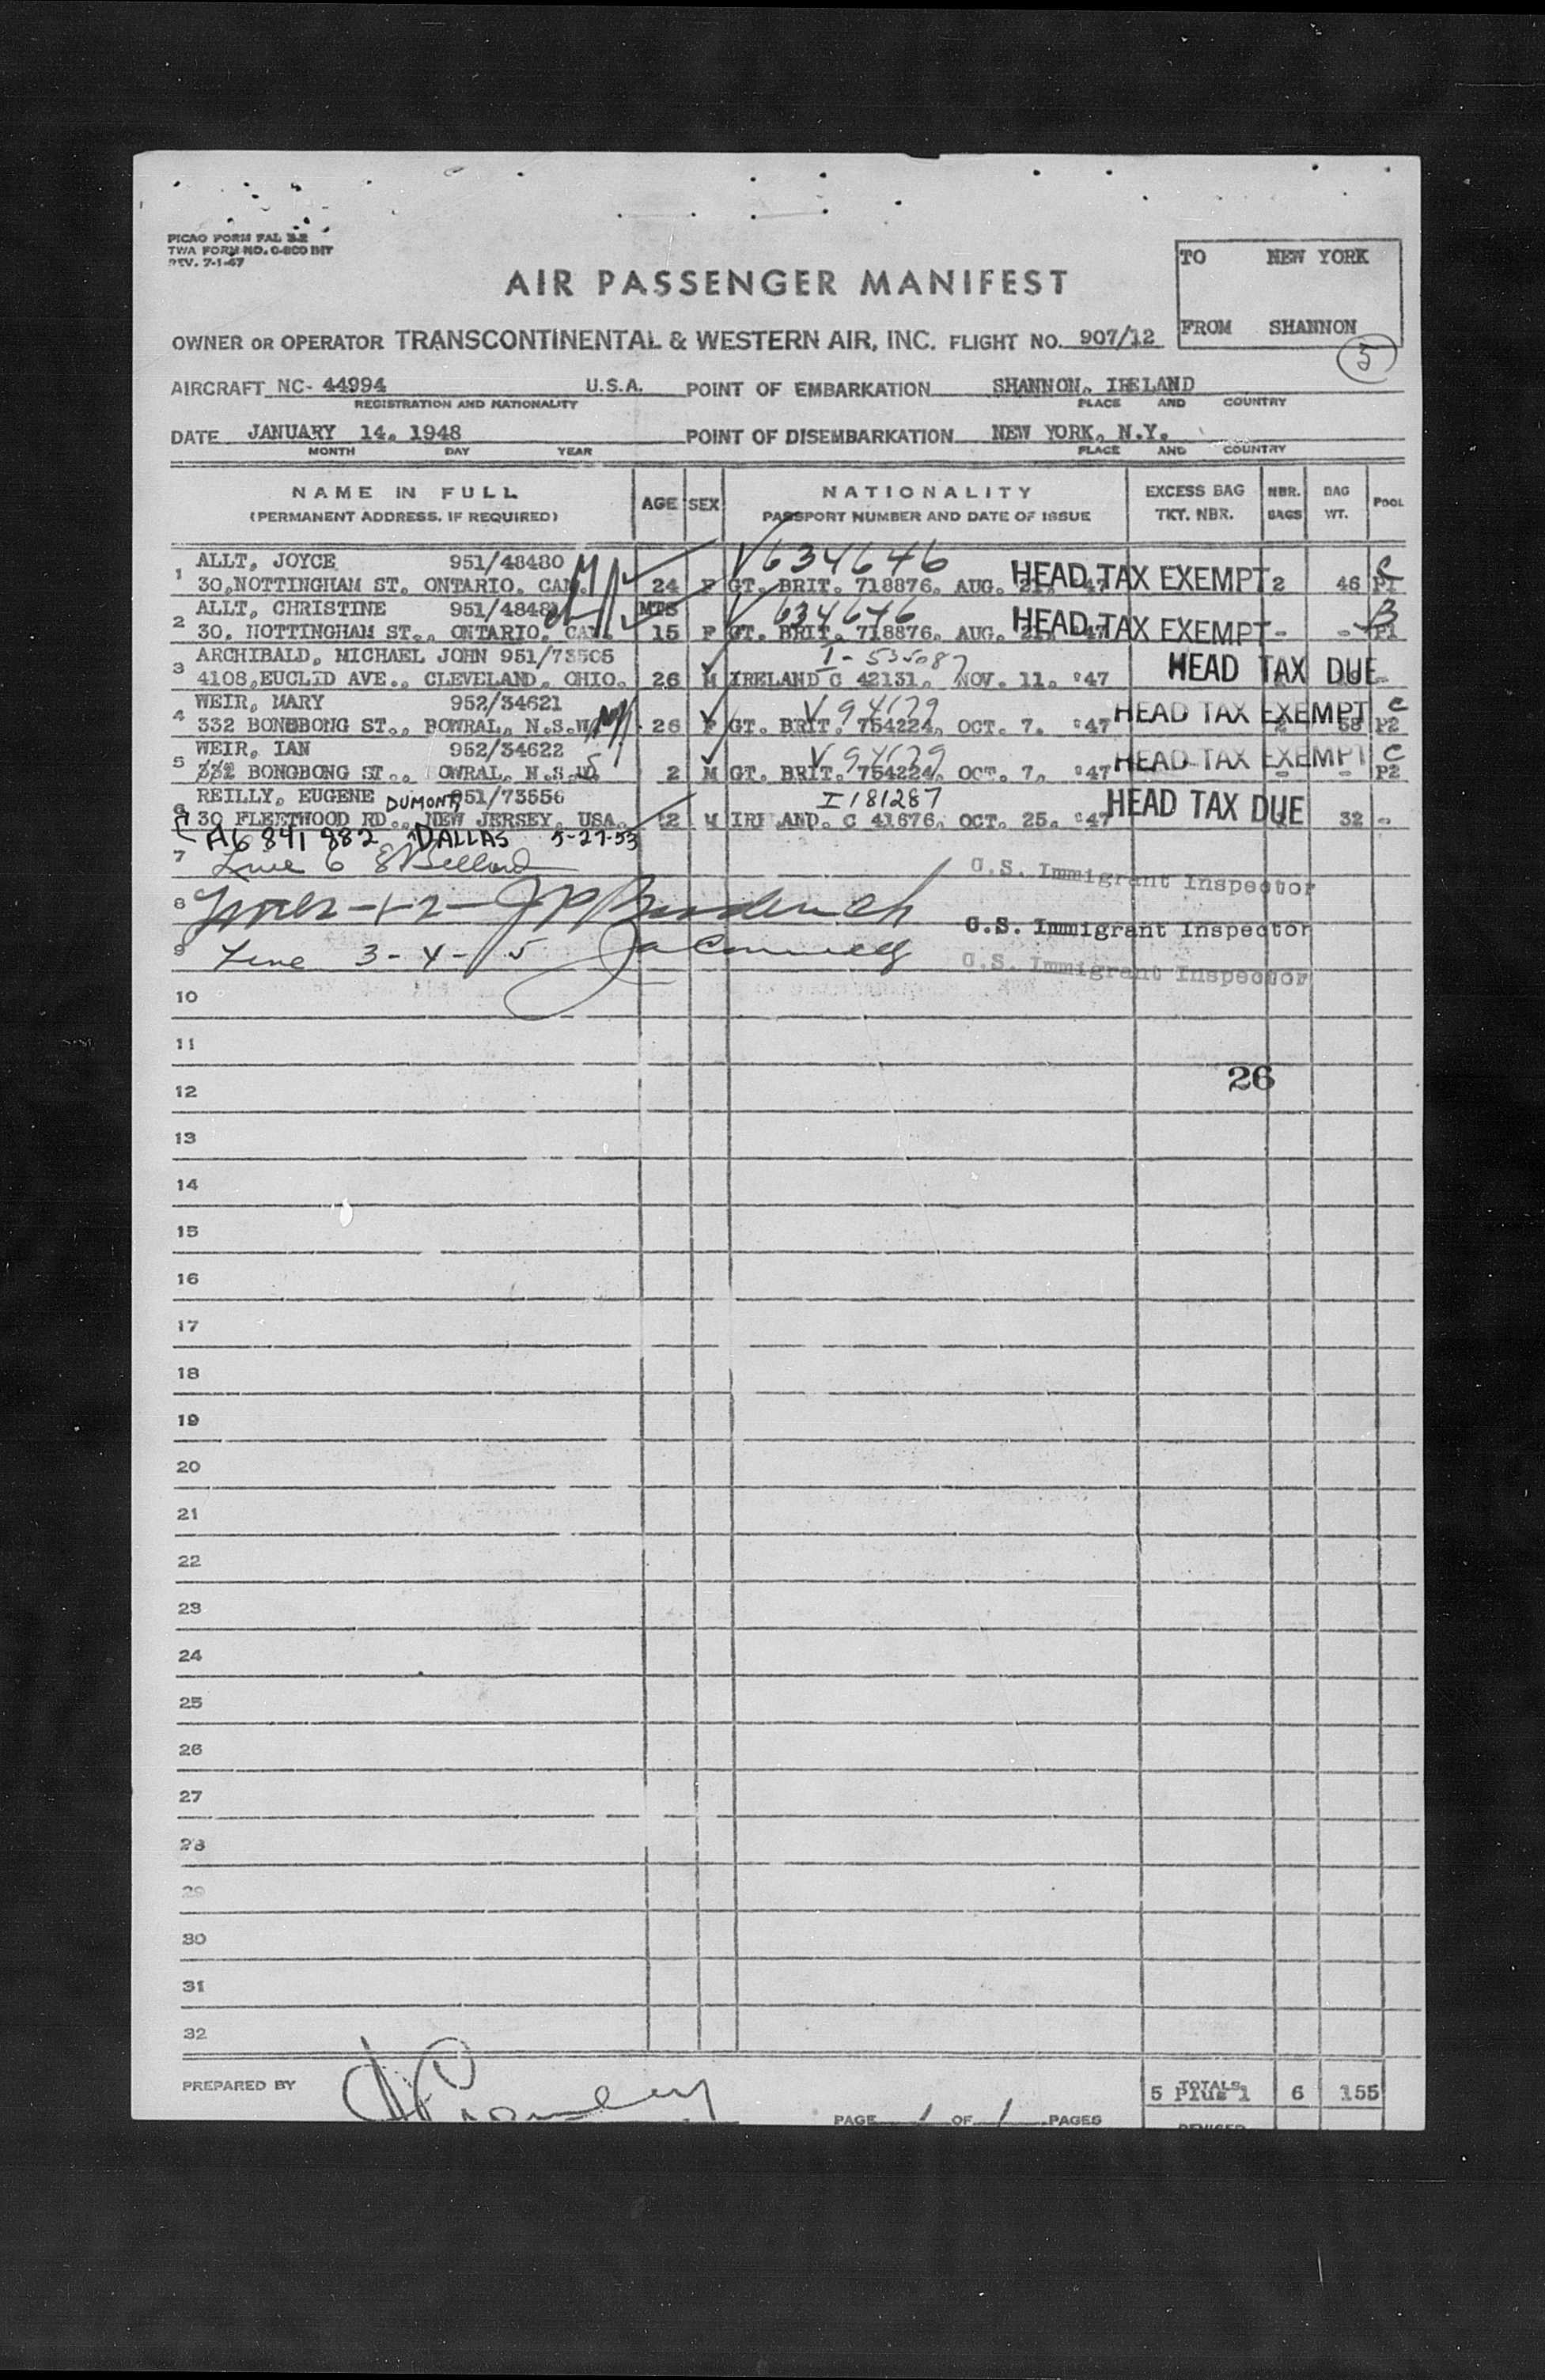 PICAO FORM FAL 3.2
TWA FORM NO. O-800 INT
REV. 7-1-47
TO NEW YORK
FROM SHANNON
5
AIR PASSENGER MANIFEST
OWNER OR OPERATOR TRANSCONTINENTAL & WESTERN AIR, INC. FLIGHT NO. 907/12
AIRCRAFT NC- 44994 U.S.A. POINT OF EMBARKATION SHANNON, IRELAND
REGISTRATION AND NATIONALITY PLACE AND COUNTRY
DATE JANUARY 14, 1948 POINT OF DISEMBARKATION NEW YORK, N.Y.
MONTH DAY YEAR PLACE AND COUNTRY
NAME IN FULL AGE SEX NATIONALITY EXCESS BAG NBR. BAG POOL
(PERMANENT ADDRESS, IF REQUIRED) PASSPORT NUMBER AND DATE OF ISSUE TKT. NBR. BAGS WT.
ALLT, JOYCE 951/48480 V634646
1 30, NOTTINGHAM ST. ONTARIO. CAN. 24 F GT. BRIT. 718876, AUG. 21, '47 HEAD TAX EXEMPT 2 46 P1
ALLT, CHRISTINE 951/48481 MTS 634646 B
2 30. NOTTINGHAM ST., ONTARIO. CAN. 15 F GT. BRIT. 718876, AUG. 21, '47 HEAD TAX EXEMPT - - P1
ARCHIBALD, MICHAEL JOHN 951/73505 I-535087
3 4108, EUCLID AVE., CLEVELAND, OHIO. 26 M IRELAND C 42131, NOV. 11. '47 HEAD TAX DUE -
WEIR, MARY 952/34621 V94179 C
4 332 BONGBONG ST., BOWRAL, N.S.W. 26 F GT. BRIT. 754224, OCT. 7. '47 HEAD TAX EXEMPT 2 58 P2
WEIR, IAN 952/34622 V94179 C
5 332 BONGBONG ST., OWRAL, N.S.W. 2 M GT. BRIT. 754224, OCT. 7, '47 HEAD TAX EXEMPT - - P2
REILLY, EUGENE DUMONT, 951/73556 I181287
6 30 FLEETWOOD RD., NEW JERSEY, USA. M IRELAND. C 41676, OCT. 25. '47 HEAD TAX DUE 32 -
A6 841 882 DALLAS 5-27-53
7 Line 6 U.S. Immigrant Inspector
8 Lines -1-2- JP Broderick U.S. Immigrant Inspector
9 Line 3-4-5 U.S. Immigrant Inspector
10
11
26
12
13
14
15
16
17
18
19
20
21
22
23
24
25
26
27
28
29
30
31
32
PREPARED BY TOTALS
5 Plus 1 6 155
PAGE 1 OF 1 PAGES